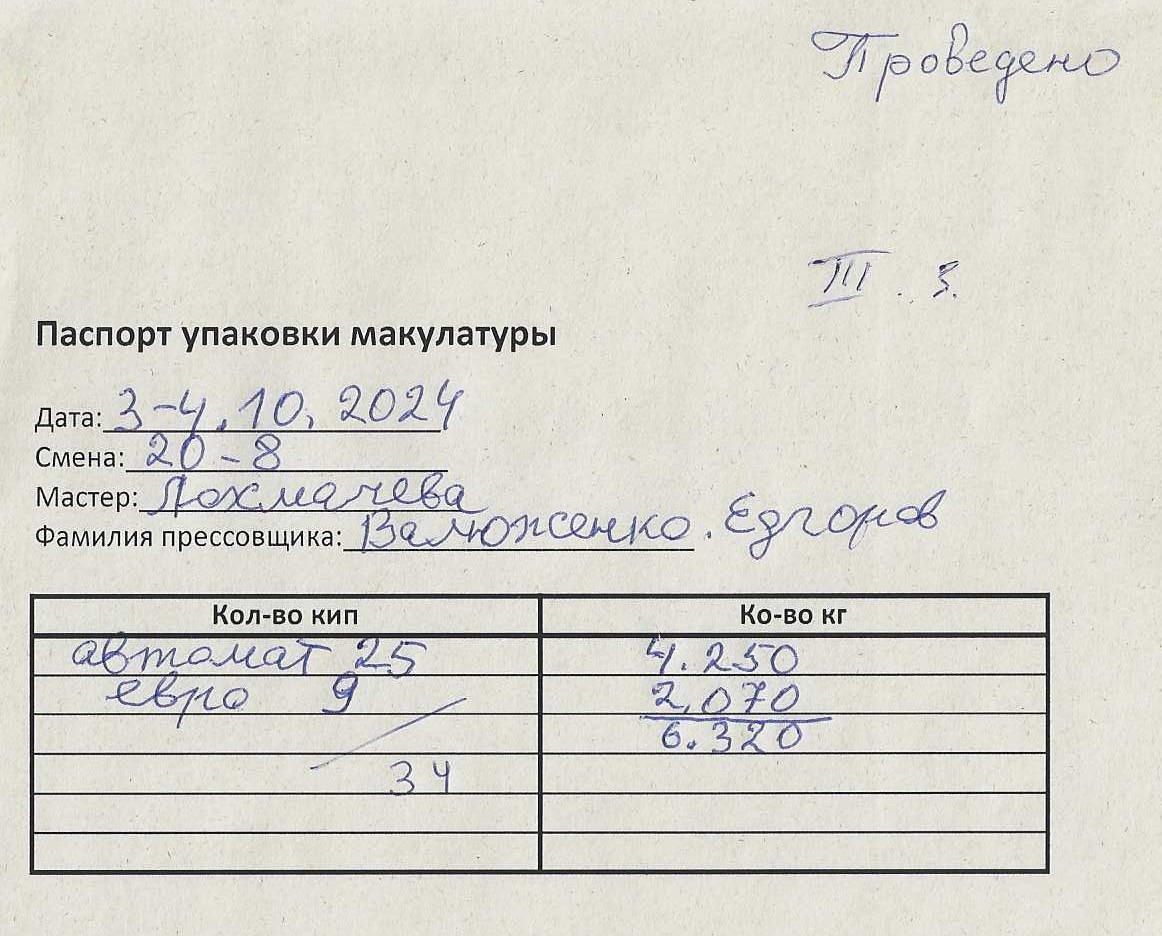 Проведено
III. 3.
Паспорт упаковки макулатуры
Дата: 3-4.10.2024
Смена: 20-8
Мастер: Лохмачева
Фамилия прессовщика: Валюженко. Едгоров
Кол-во кип Ко-во кг
автомат 25 4.250
евро 9 2.070
6.320
34